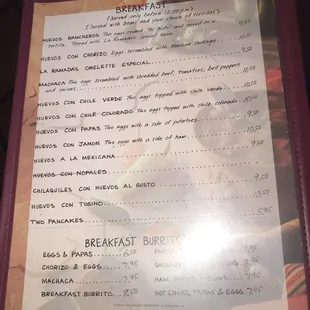 BREAKFAST
(Served only before 12:00 p.m.)
(Served with beans and your choice of tortillas)
HUEVOS RANCHEROS Two eggs cooked "Al Gusto" and served on a
tortilla. Topped with La Ramadas Special Sauce 9.50
HUEVOS CON CHORIZO Eggs scrambled with Mexican Sausage
LA RAMADAS OMELETTE ESPECIAL
MACHACA Two eggs scrambled with shredded beef, tomatoes, bell peppers
and onions
HUEVOS CON CHILE VERDE Two eggs topped with chile verde
HUEVOS CON CHILE COLORADO Two eggs topped with chile colorado 10.50
HUEVOS CON PAPAS Two eggs with a side of potatoes
HUEVOS CON JAMON Two eggs with a side of ham 10.50
HUEVOS A LA MEXICANA 9.50
HUEVOS CON NOPALES
CHILAQUILES CON HUEVOS AL GUSTO
HUEVOS CON TOSINO 10.50
TWO PANCAKES 5.95
BREAKFAST BURRITO
EGGS & PAPAS 6.50
CHORIZO & EGGS 7.95
MACHACA 7.95
BREAKFAST BURRITO 8.50
7.95
7.95
HAM, 7.95
HOT LINKS, PAPAS & EGGS 7.95